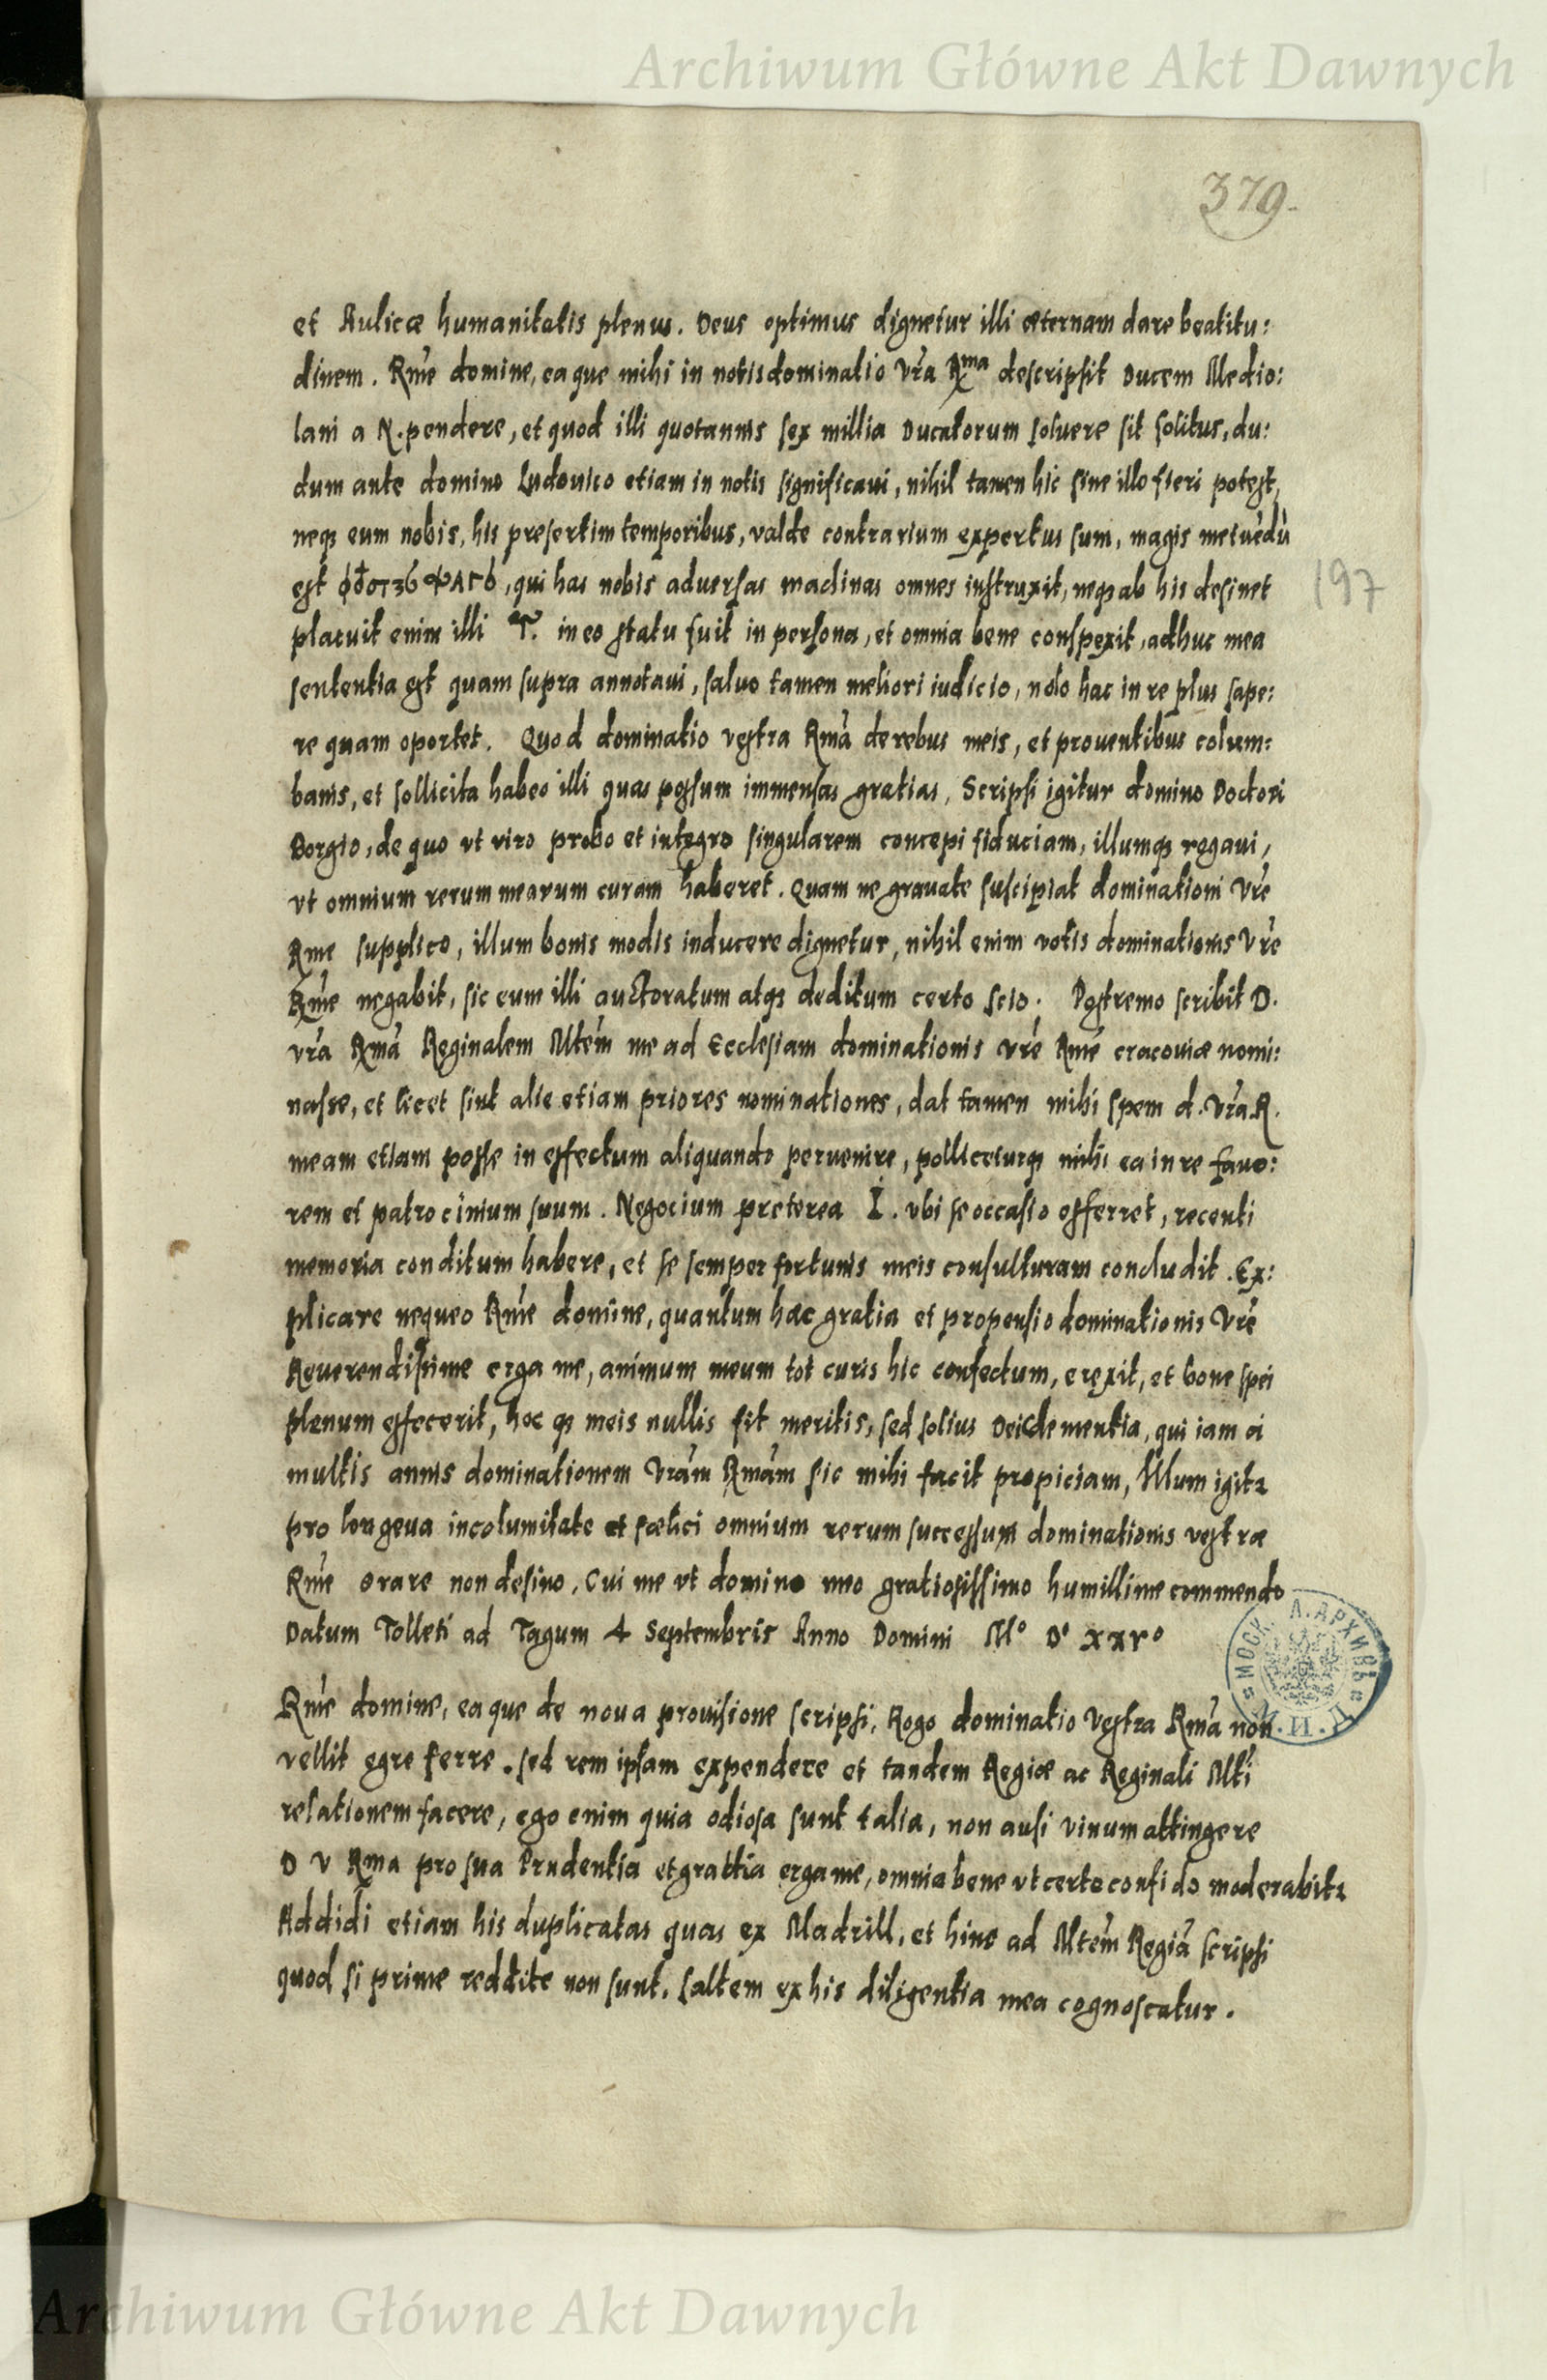 Archiwum Główne Akt Dawnych
379.
et Aulicæ humanitatis plenus. Deus optimus dignetur illi æternam dare beatitu:
dinem. Rme domine, ea que mihi in notis dominatio vra Rma descripsit Ducem Medio:
lani a N. pendere, et quod illi quotannis sex millia Ducatorum soluere sit solitus, du:
dum ante domino Ludouico etiam in notis significaui, nihil tamen hic sine illo fieri potest,
neqȝ eum nobis, his presertim temporibus, valde contrarium expertus sum, magis metuēdū
est , qui has nobis aduersas machinas omnes instruxit, neqȝ ab his desinet
placuit enim illi . in eo statu fuit in persona, et omnia bene conspexit, adhuc mea
sententia est quam supra annotaui, saluo tamen meliori iudicio, nolo hac in re plus sape:
re quam oportet. Quod dominatio vestra Rma de rebus meis, et prouentibus colum:
banis, et sollicita habeo illi quas possum immensas gratias, Scripsi igitur domino Doctori
Borgio, de quo vt viro probo et integro singularem concepi fiduciam, illumqȝ rogaui,
vt omnium rerum mearum curam haberet. Quam ne grauate suscipiat dominationi vre
Rme supplico, illum bonis modis inducere dignetur, nihil enim votis dominationis vre
Rme negabit, sic eum illi auctoratum atqȝ deditum certo scio. Postremo scribit D.
vra Rma Reginalem Mtem me ad Ecclesiam dominationis vre Rme cracouiæ nomi:
nasse, et licet sint alie etiam priores nominationes, dat tamen mihi spem d. vra R.
meam etiam posse in effectum aliquando peruenire, polliceturqȝ mihi ea in re fauo:
rem et patrocinium suum. Negocium preterea I. vbi se occasio offerret, recenti
memoria conditum habere, et se semper fortunis meis consulturam concludit. Ex:
plicare nequeo Rme domine, quantum hæc gratia et propensio dominationis vre
Reuerendissime erga me, animum meum tot curis hic confectum, erexit, et bone spei
plenum effecerit, hoc qȝ meis nullis fit meritis, sed solius Dei clementia, qui iam a
multis annis dominationem vram Rmam sic mihi facit propiciam, Illum igitꝛ
pro longeua incolumitate et fœlici omnium rerum successum dominationis vestræ
Rme orare non desino, Cui me vt domino meo gratiosissimo humillime commendo
Datum Tolleti ad Tagum 4 Septembris Anno Domini Mº Dº xxvº
Rme domine, ea que de noua prouisione scripsi, Rogo dominatio vestra Rma non
vellit egre ferre. sed rem ipsam expendere et tandem Regiæ ac Reginali Mti
relationem facere, ego enim quia odiosa sunt talia, non ausi vinum attingere
D V Rma pro sua Prudentia et gratia erga me, omnia bene vt certe confido moderabitꝛ
Addidi etiam his duplicatas quas ex Madrill, et hinc ad Mtem Regiā scripsi
quod si prime reddite non sunt, saltem ex his diligentia mea cognoscatur.
197
МОСК. Л. АРХИВЪ
Archiwum Główne Akt Dawnych